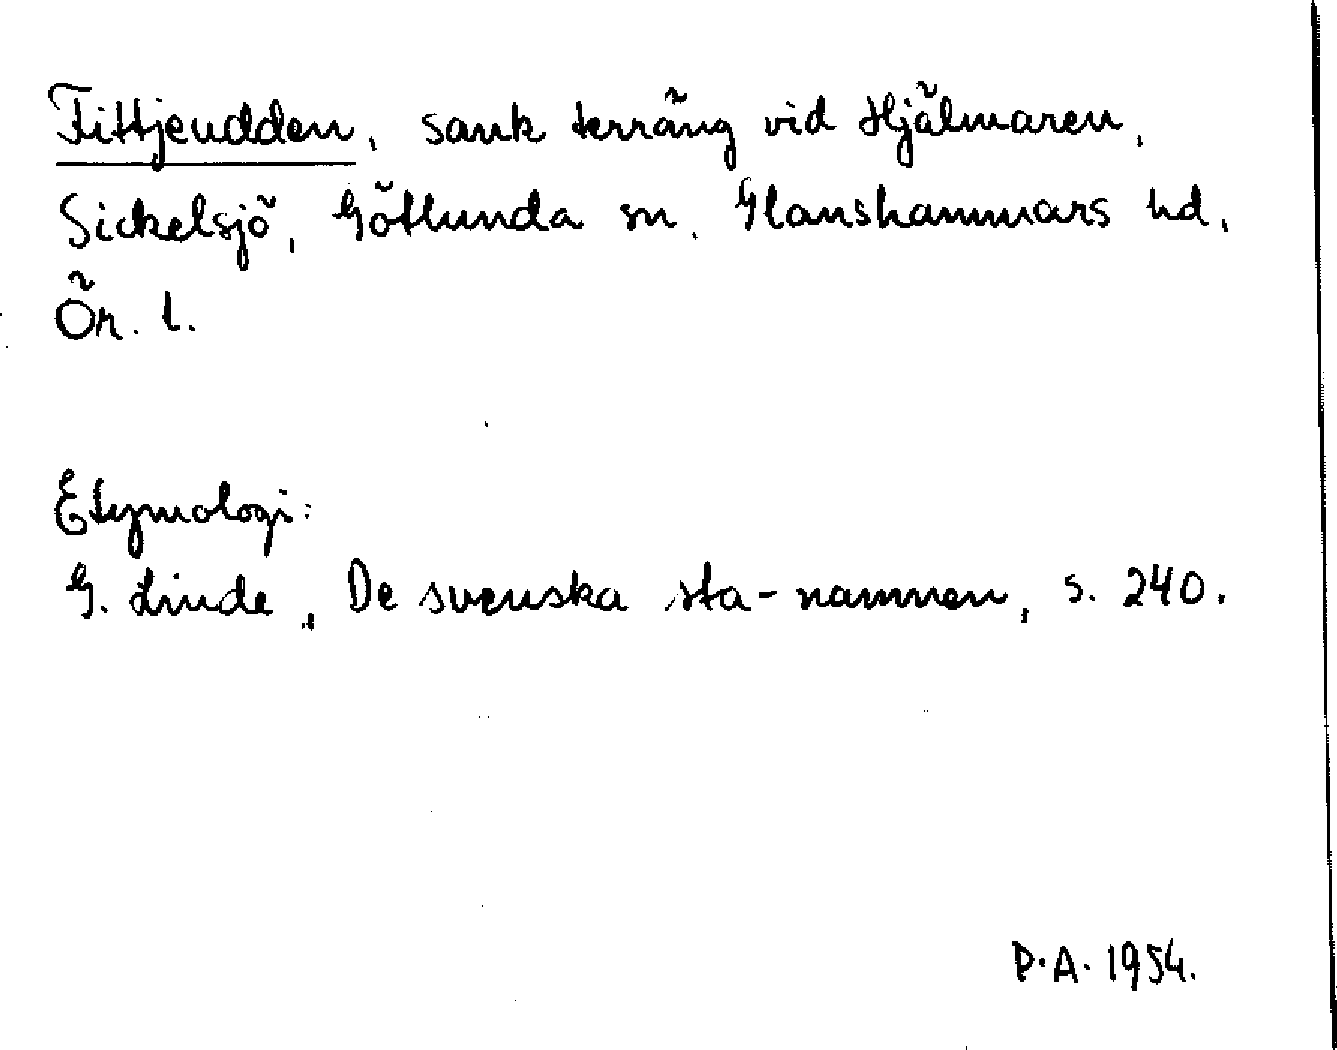 Fittjeudden, sank terräng vid Hjälmaren,
Sickelsjö, Götlunda sn, Glanshammars hd,
Ör. l.
Etymologi:
G. Linde, De svenska sta-namnen, s. 240.
P.A. 1954.